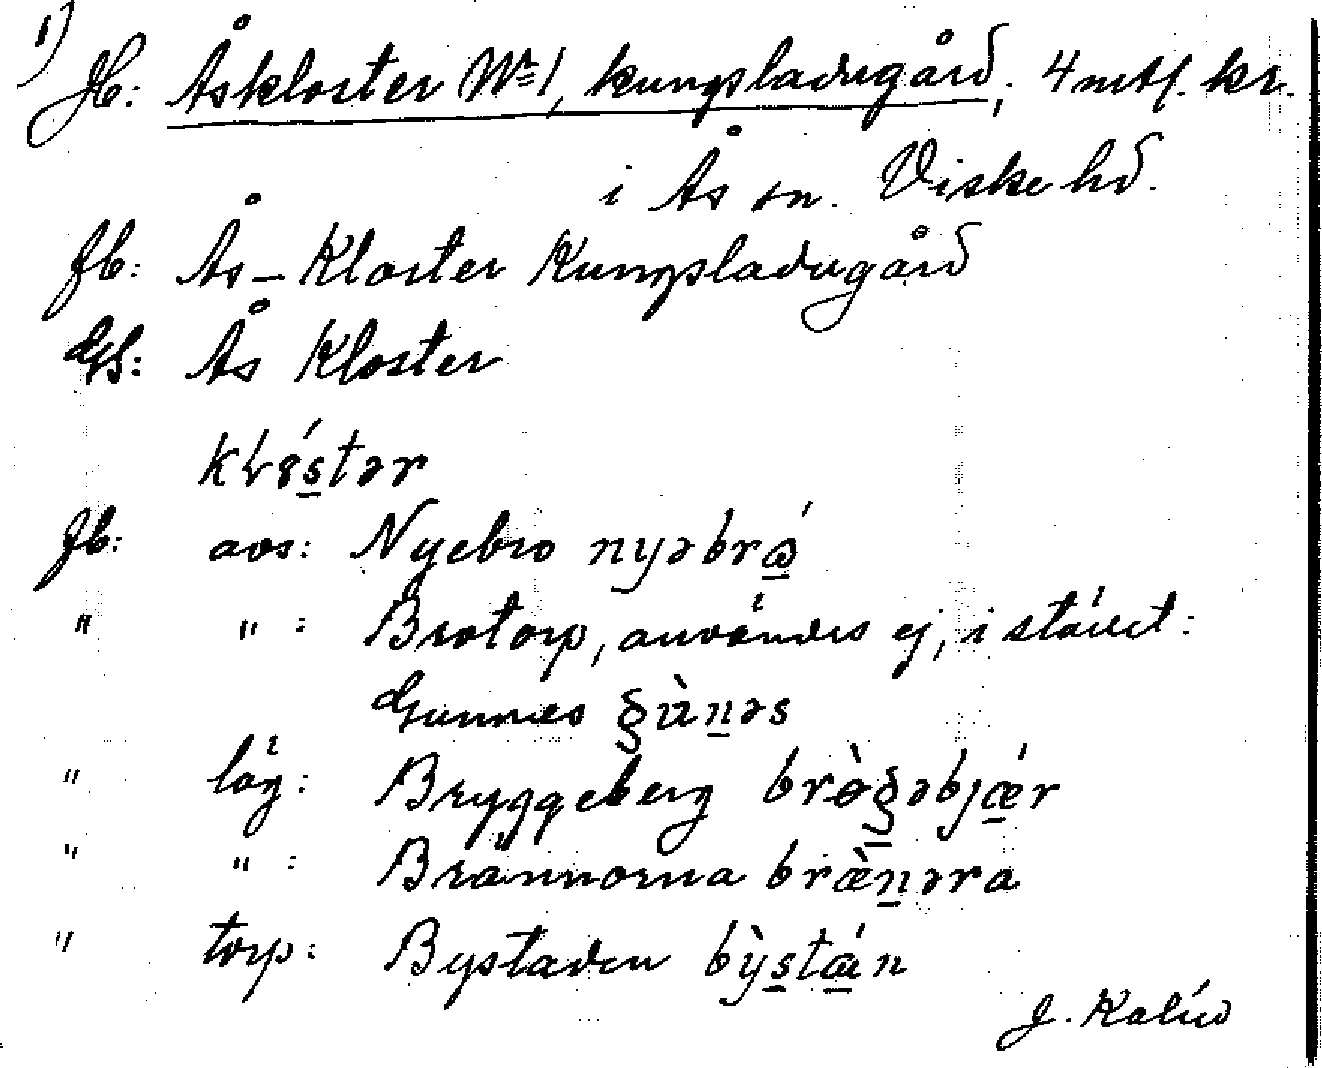 1)
Jb: Åskloster Nr 1, kungsladugård, 4 mtl. kr.
i Ås sn. Viske hd.
fb: Ås-Kloster Kungsladugård
GS: Ås Kloster
fb: avs: Nyebro nyəbrɷ́
" " : Brotorp, användes ej, i stället:
Gunnes
" läg: Bryggeberg
" " : Brännorna bræ̀nəra
" torp: Bystaden bỳstán
J. Kalén